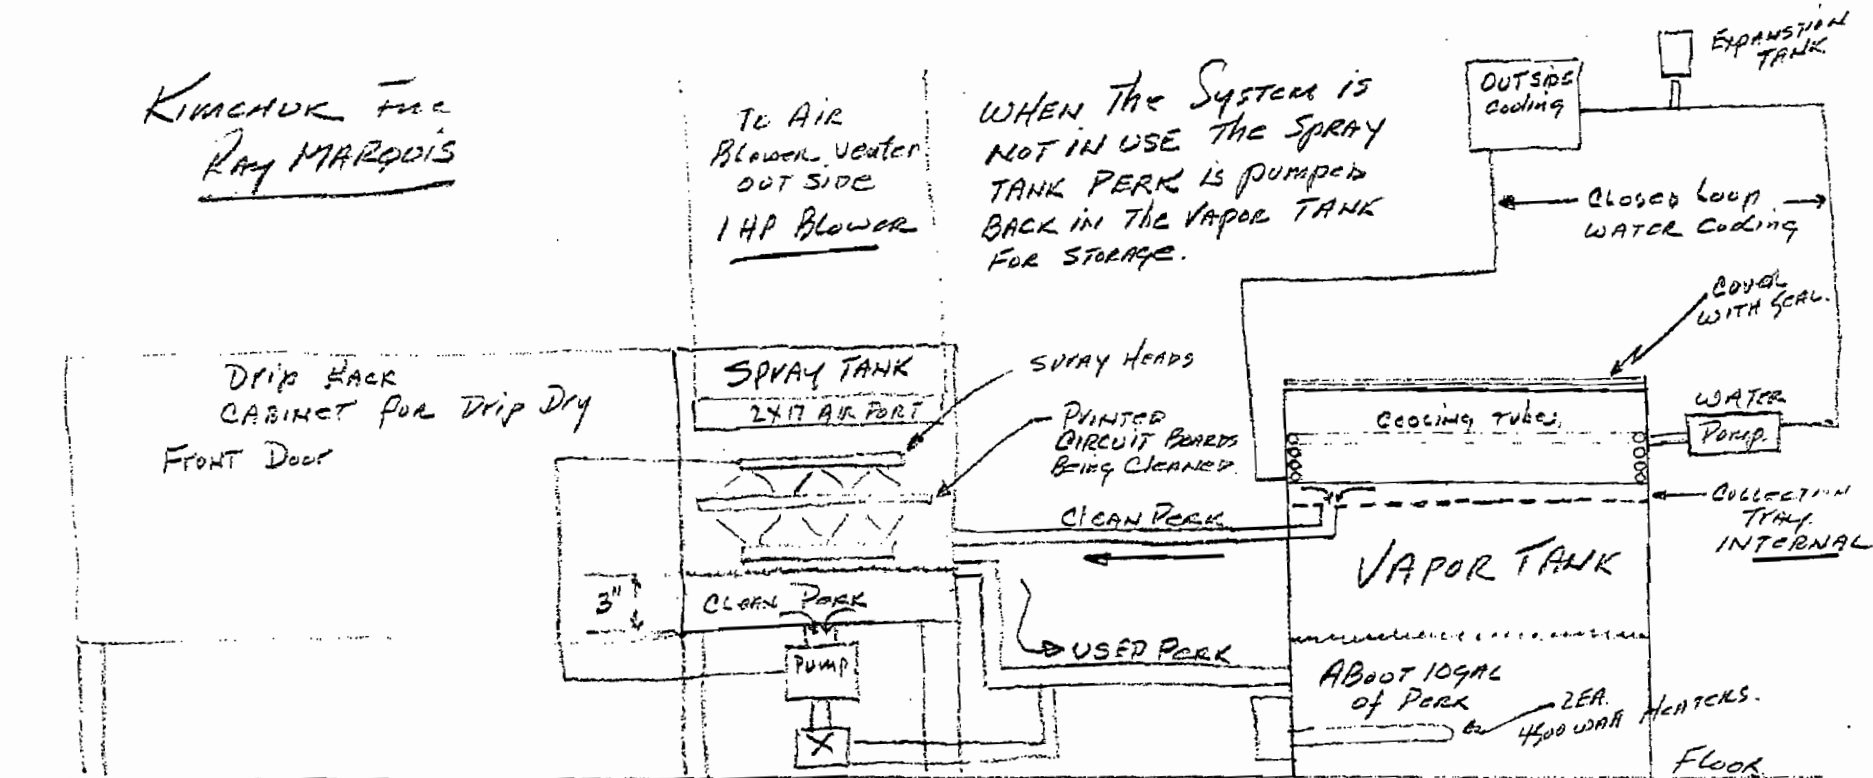 KIMCHUK Inc
RAY MARQUIS
To AIR
BLOWER Venter
OUT SIDE
1 HP BLOWER
WHEN The SYSTEM is
NOT IN USE The SPRAY
TANK PERK is pumped
BACK in The VAPOR TANK
FOR STORAGE.
OUTSIDE
Cooling
EXPANSTION
TANK
CLOSED Loop
WATER Cooling
COVER
WITH SEAL.
Drip RACK
CABINET for Drip Dry
FRONT Door
SPRAY TANK
2X17 AIR PORT
SPRAY HEADS
PRINTED
CIRCUIT BOARDS
Being CLEANED
COOLING TUBES
WATER
Pump
CLEAN PERK
COLLECTION
TRAY
INTERNAL
VAPOR TANK
3"
CLEAN PERK
PUMP
X
USED PERK
ABOUT 10GAL
of PERK
2EA.
4500 WATT HEATERS.
FLOOR